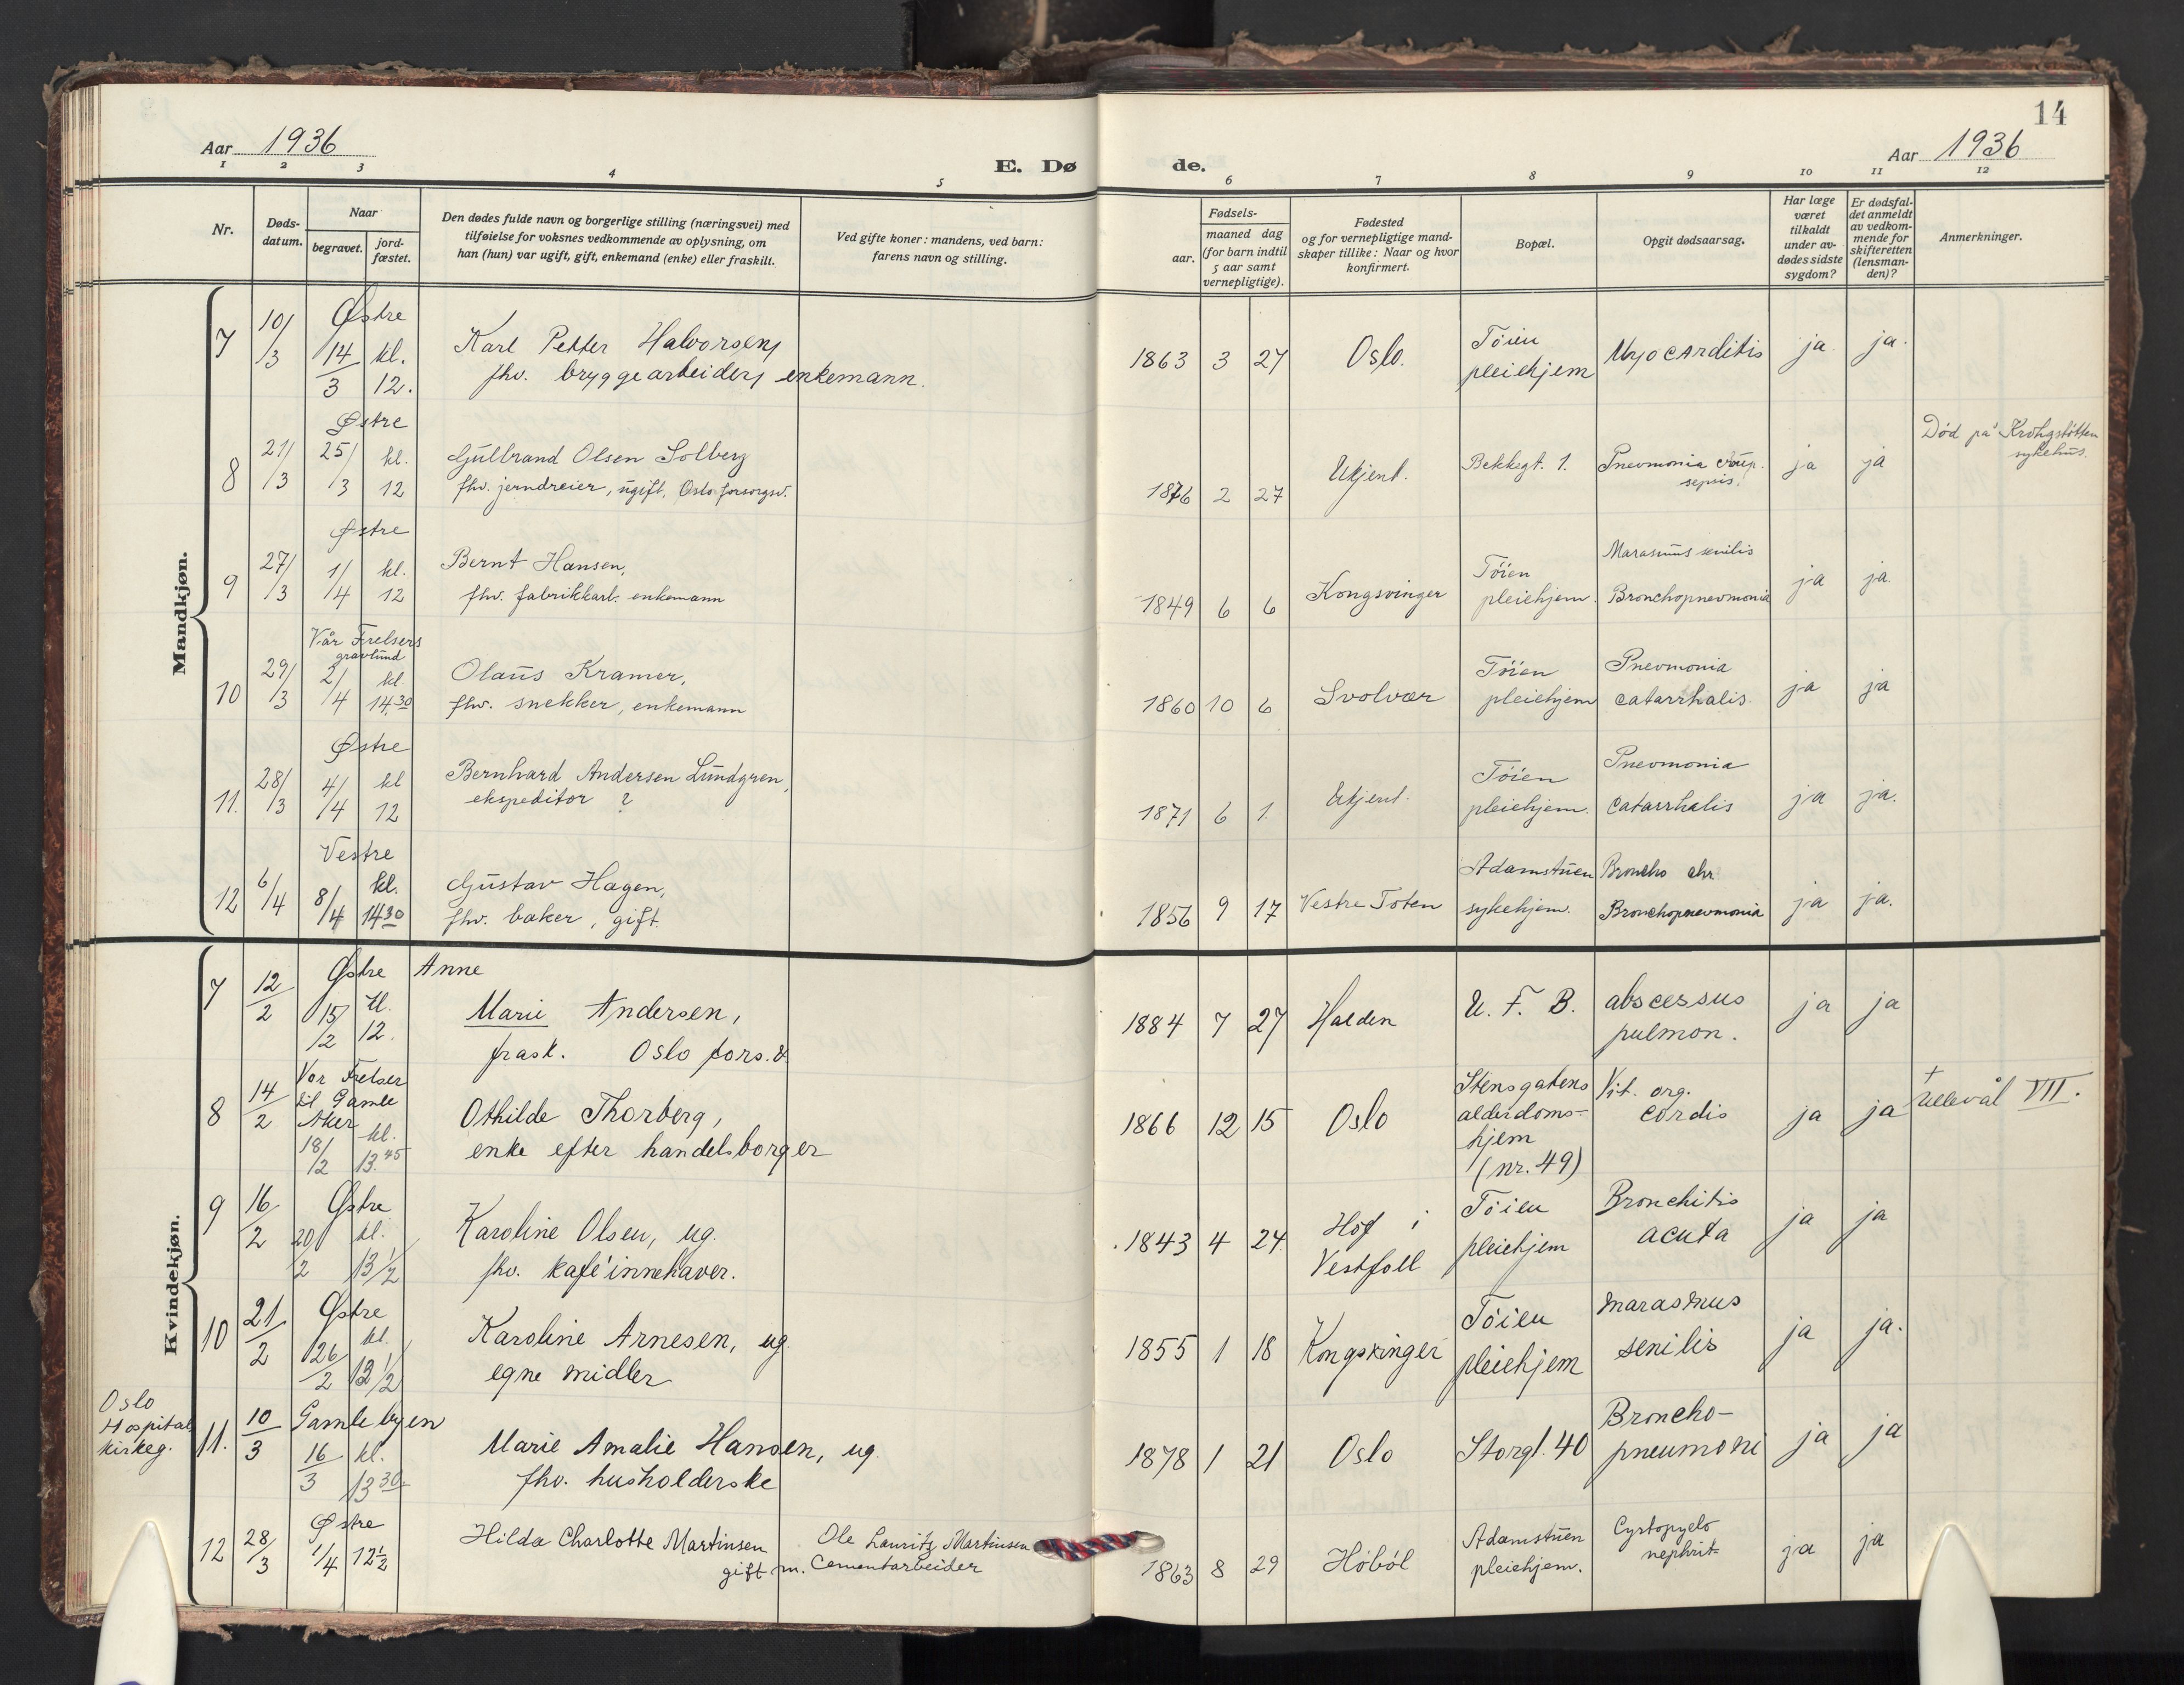 14
Aar 1936
Aar 1936
E. Dø de.
1 2 3 4 5 6 7 8 9 10 11 12
Nr.
Døds-
datum.
Naar
begravet.
jord-
fæstet.
Den dødes fulde navn og borgerlige stilling (næringsvei) med
tilføielse for voksnes vedkommende av oplysning, om
han (hun) var ugift, gift, enkemand (enke) eller fraskilt.
Ved gifte koner: mandens, ved barn:
farens navn og stilling.
Fødsels-
aar.
maaned dag
(for barn indtil
5 aar samt
vernepligtige).
Fødested
og for vernepligtige mand-
skaper tillike: Naar og hvor
konfirmert.
Bopæl.
Opgit dødsaarsag.
Har læge
været
tilkaldt
under av-
dødes sidste
sygdom?
Er dødsfal-
det anmeldt
av vedkom-
mende for
skifteretten
(lensman-
den)?
Anmerkninger.
Mandkjøn.
7 10/3 Østre 14/3 kl. 12.
Karl Petter Halvorsen,
fhv. bryggearbeider, enkemann.
1863 3 27 Oslo.
Töien
pleiehjem
Myocarditis ja ja.
8 21/3 Østre 25/3 kl. 12
Gulbrand Olsen Solberg
fhv. jerndreier, ugift, Oslo forsorgsv.
1876 2 27 Ukjent. Bekkegt. 1.
Pneumonia croup.
sepsis.
ja ja
Död på Krohgstötten
sykehus.
9 27/3 Østre 1/4 kl. 12
Bernt Hansen,
fhv. fabrikkarb. enkemann
1849 6 6 Kongsvinger
Töien
pleiehjem.
Marasmus senilis
Bronchopneumonia
ja ja.
10 29/3 Vår Frelsers
gravlund
2/4 kl. 14.30
Olaus Kramer,
fhv. snekker, enkemann
1860 10 6 Svolvær
Töien
pleiehjem
Pneumonia
catarrhalis.
ja ja
11. 28/3 Østre 4/4 kl 12
Bernhard Andersen Lundgren,
ekspeditor ?
1871 6 1. Ukjent.
Töien
pleiehjem.
Pneumonia
catarrhalis
ja ja.
12 6/4 Vestre 8/4 kl. 1430
Gustav Hagen,
fhv. baker, gift.
1856 9 17 Vestre Toten
Adamstuen
sykehjem.
Broncho chr
Bronchopneumonia
ja ja.
Kvindekjøn.
7 12/2 Østre 15/2 kl. 12.
Anne
Marie Andersen,
frask. Oslo fors. v.
1884 7 27 Halden U. F. B.
abscessus
pulmon.
ja ja
8 14/2 Vor Frelser
til Gamle
Aker
18/2 kl. 13.45
Othilde Thorberg,
enke efter handelsborger
1866 12 15 Oslo
Stensgatens
alderdoms-
hjem
(nr. 49)
Vit. org.
cordis
ja ja
+
Ullevål VII.
9 16/2 Østre 20/2 kl. 13 1/2
Karoline Olsen, ug.
fhv. kaféinnehaver.
1843 4 24.
Hof i
Vestfoll
Töien
pleiehjem
Bronchitis
acuta
ja ja
10 21/2 Østre 26/2 kl. 13 1/2
Karoline Arnesen, ug.
egne midler
1855 1 18 Kongsvinger
Töien
pleiehjem
marasmus
senilis
ja ja.
Oslo
Hospital
kirkeg.
11. 10/3 Gamlebyen 16/3 kl. 13 30
Marie Amalie Hansen, ug.
fhv. husholderske
1878 1 21 Oslo Storgt. 40
Broncho-
pneumoni
ja ja
12 28/3 Østre 1/4 12 1/2
Hilda Charlotte Martinsen
gift m.
Ole Lauritz Martinsen
Cementarbeider
1863 8 29 Höböl
Adamstuen
pleiehjem.
Cystopyelo
nephrit-
ja ja